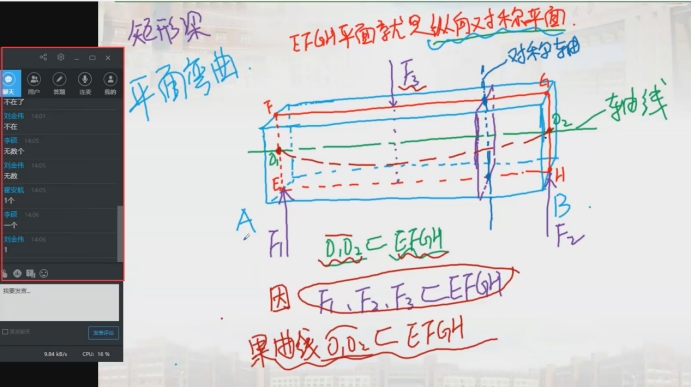 矩形梁
EFGH平面就是纵向对称平面.
平面弯曲.
对称轴
轴线
F₃
F
G
O₁
O₂
E
H
A
B
F₁
F₂
O₁O₂⊂EFGH
因 F₁、F₂、F₃⊂EFGH
果曲线O₁O₂⊂EFGH
聊天
用户
答题
连麦
我的
不在了
刘会伟 14:01
不在
李硕 14:05
无数个
刘会伟 14:05
无数
翟安航 14:05
1个
李硕 14:06
一个
刘会伟 14:06
1
我要发言...
发表评论
9.84 kB/s CPU: 16 %